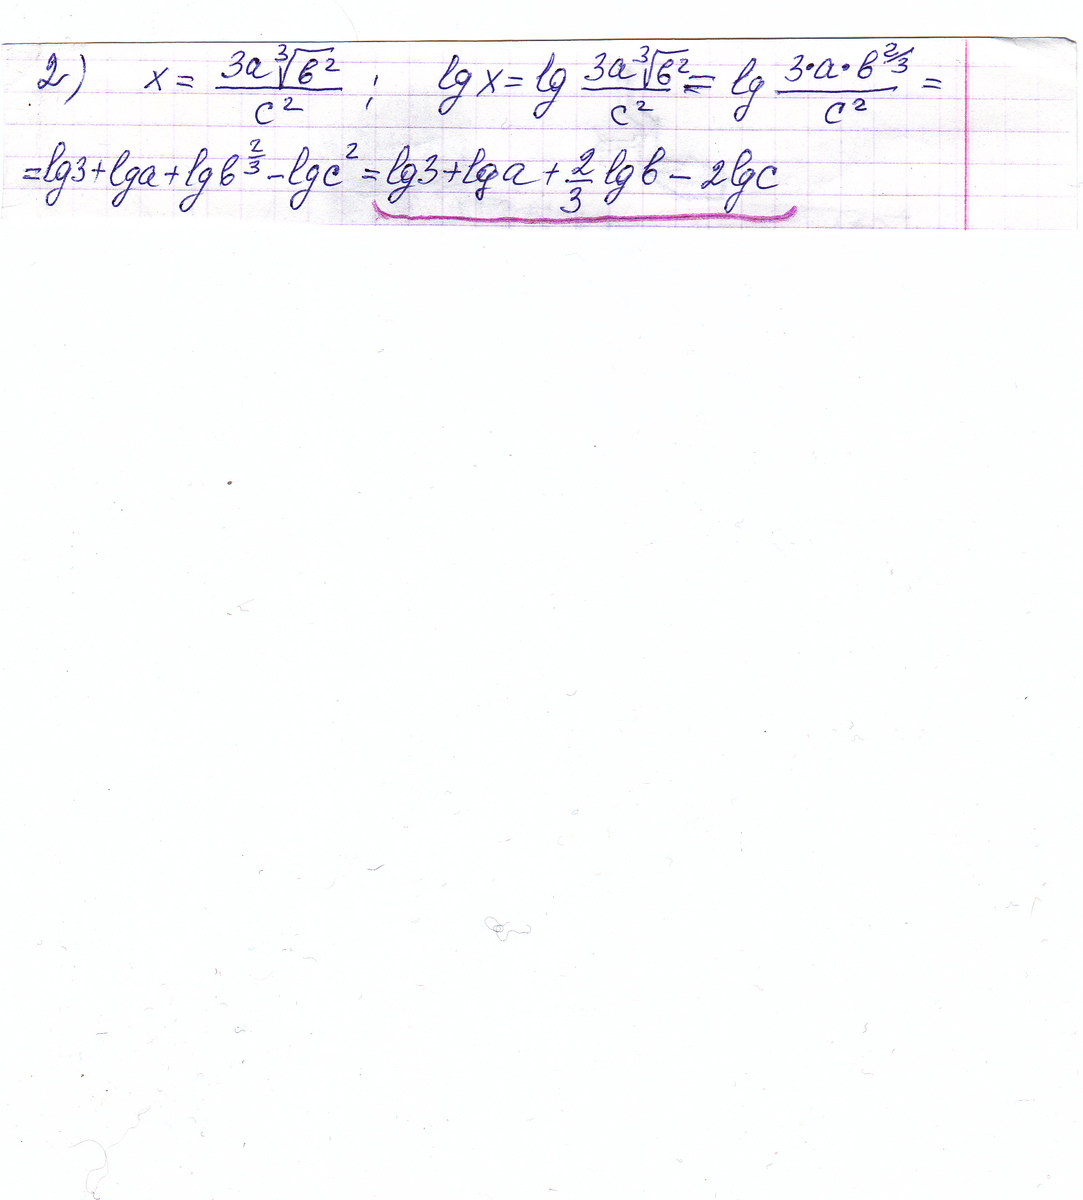 2) x = 3a∛b² / c² ; lg x = lg 3a∛b² / c² = lg 3·a·b^(2/3) / c² =
= lg3 + lga + lgb^(2/3) − lgc² = lg3 + lga + 2/3 lgb − 2lgc